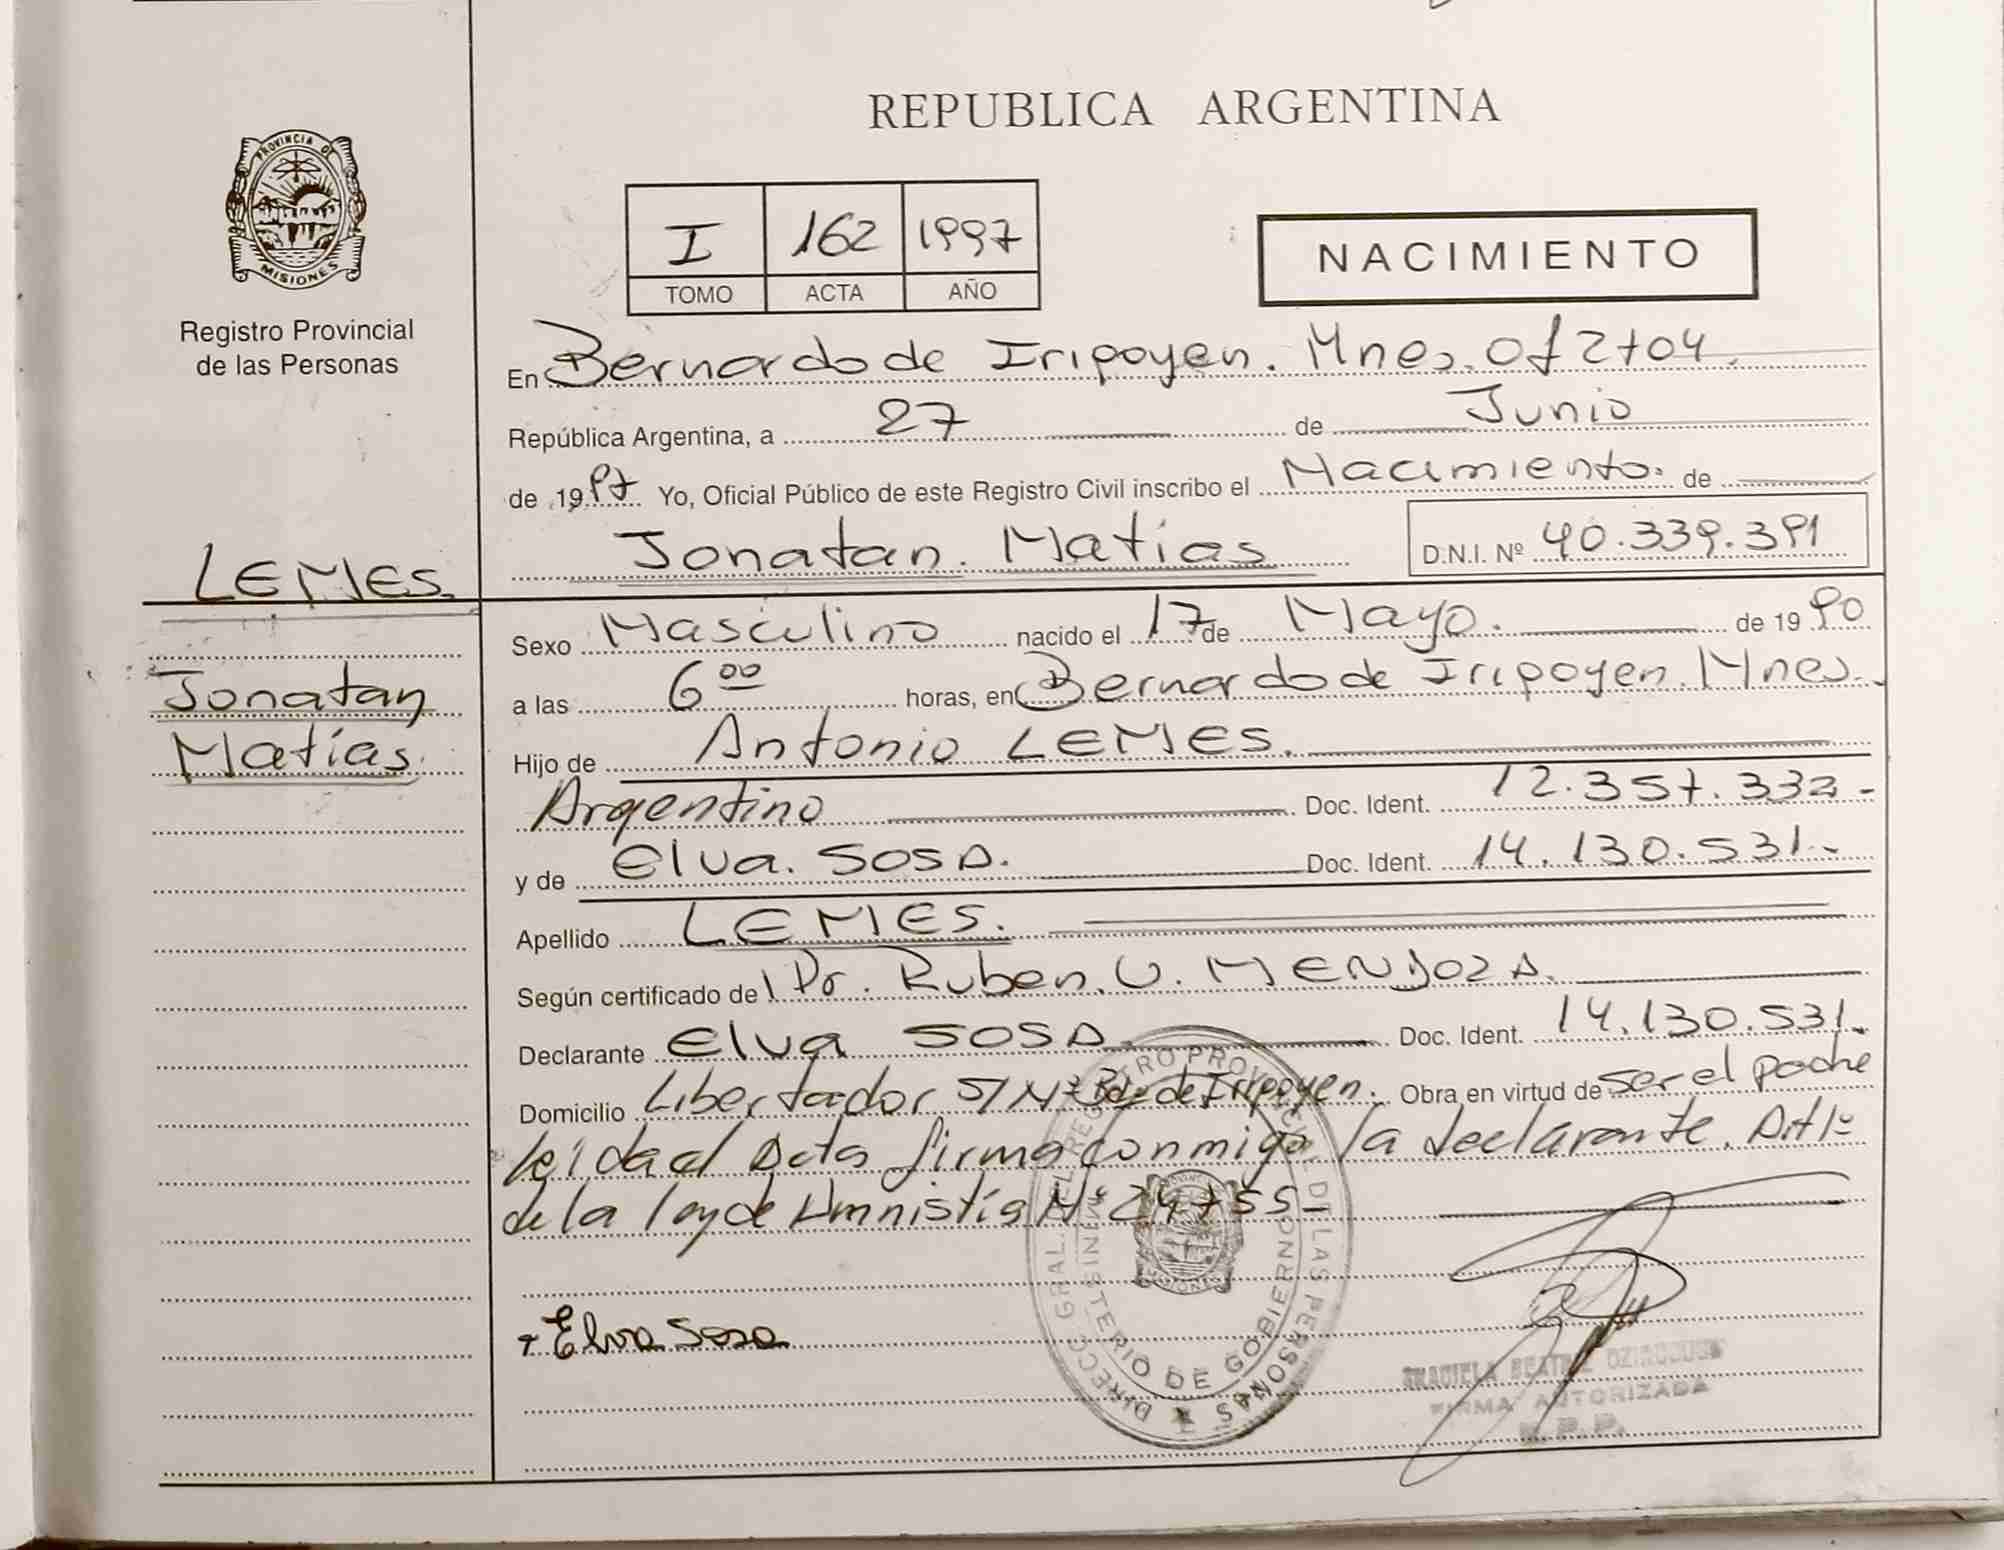 PROVINCIA DE
MISIONES
Registro Provincial
de las Personas
LEMES
Jonatan
Matías
REPUBLICA ARGENTINA
I 162 1997
TOMO ACTA AÑO
NACIMIENTO
En Bernardo de Iripoyen. Mnes. of 2704.
República Argentina, a 27 de Junio
de 1997 Yo, Oficial Público de este Registro Civil inscribo el Nacimiento. de
Jonatan. Matías D.N.I. Nº 40.339.391
Sexo Masculino nacido el 17 de Mayo. de 1990
a las 6 00 horas, en Bernardo de Iripoyen. Mnes.
Hijo de Antonio LEMES.
Argentino Doc. Ident. 12.357.332.-
y de Elva. SOSA. Doc. Ident. 14.130.531.-
Apellido LEMES.
Según certificado del Dr. Ruben. U. MENDOZA.
Declarante Elva SOSA. Doc. Ident. 14.130.531.
Domicilio Libertador S/Nº Bdo de Iripoyen. Obra en virtud de ser el
leida el Acta firma conmigo la declarante. Art 1º
de la ley de Amnistía Nº 24755
Elva Sosa
DIRECC. GRAL. DEL REGISTRO PROVINCIAL DE LAS PERSONAS
MINISTERIO DE GOBIERNO
MISIONES
GRACIELA BEATRIZ
FIRMA AUTORIZADA
R.P.P.